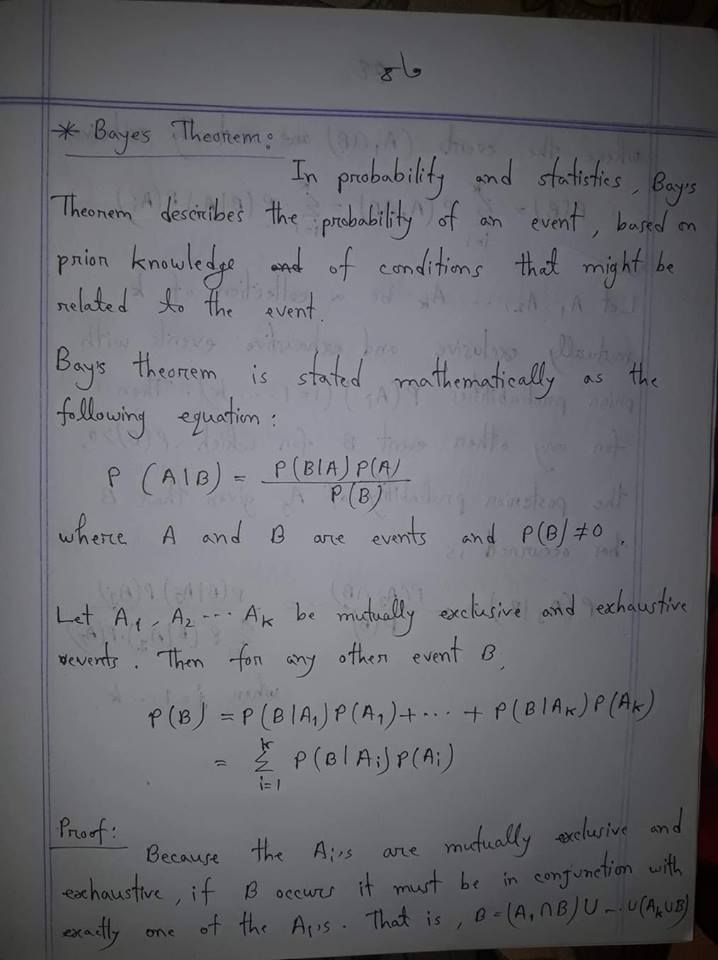 * Bayes Theorem:
In probability and statistics, Bay's
Theorem describes the probability of an event, based on
prior knowledge of conditions that might be
related to the event.
Bay's theorem is stated mathematically as the
following equation:
P (A|B) = P(B|A) P(A) / P(B)
where A and B are events and P(B) ≠ 0.
Let A₁, A₂ ... Aₖ be mutually exclusive and exhaustive
events. Then for any other event B,
P(B) = P(B|A₁) P(A₁) + ... + P(B|Aₖ) P(Aₖ)
= Σᵢ₌₁ᵏ P(B|Aᵢ) P(Aᵢ)
Proof:
Because the Aᵢ's are mutually exclusive and
exhaustive, if B occurs it must be in conjunction with
exactly one of the Aᵢ's. That is, B = (A₁ ∩ B) U ... U (Aₖ U B)